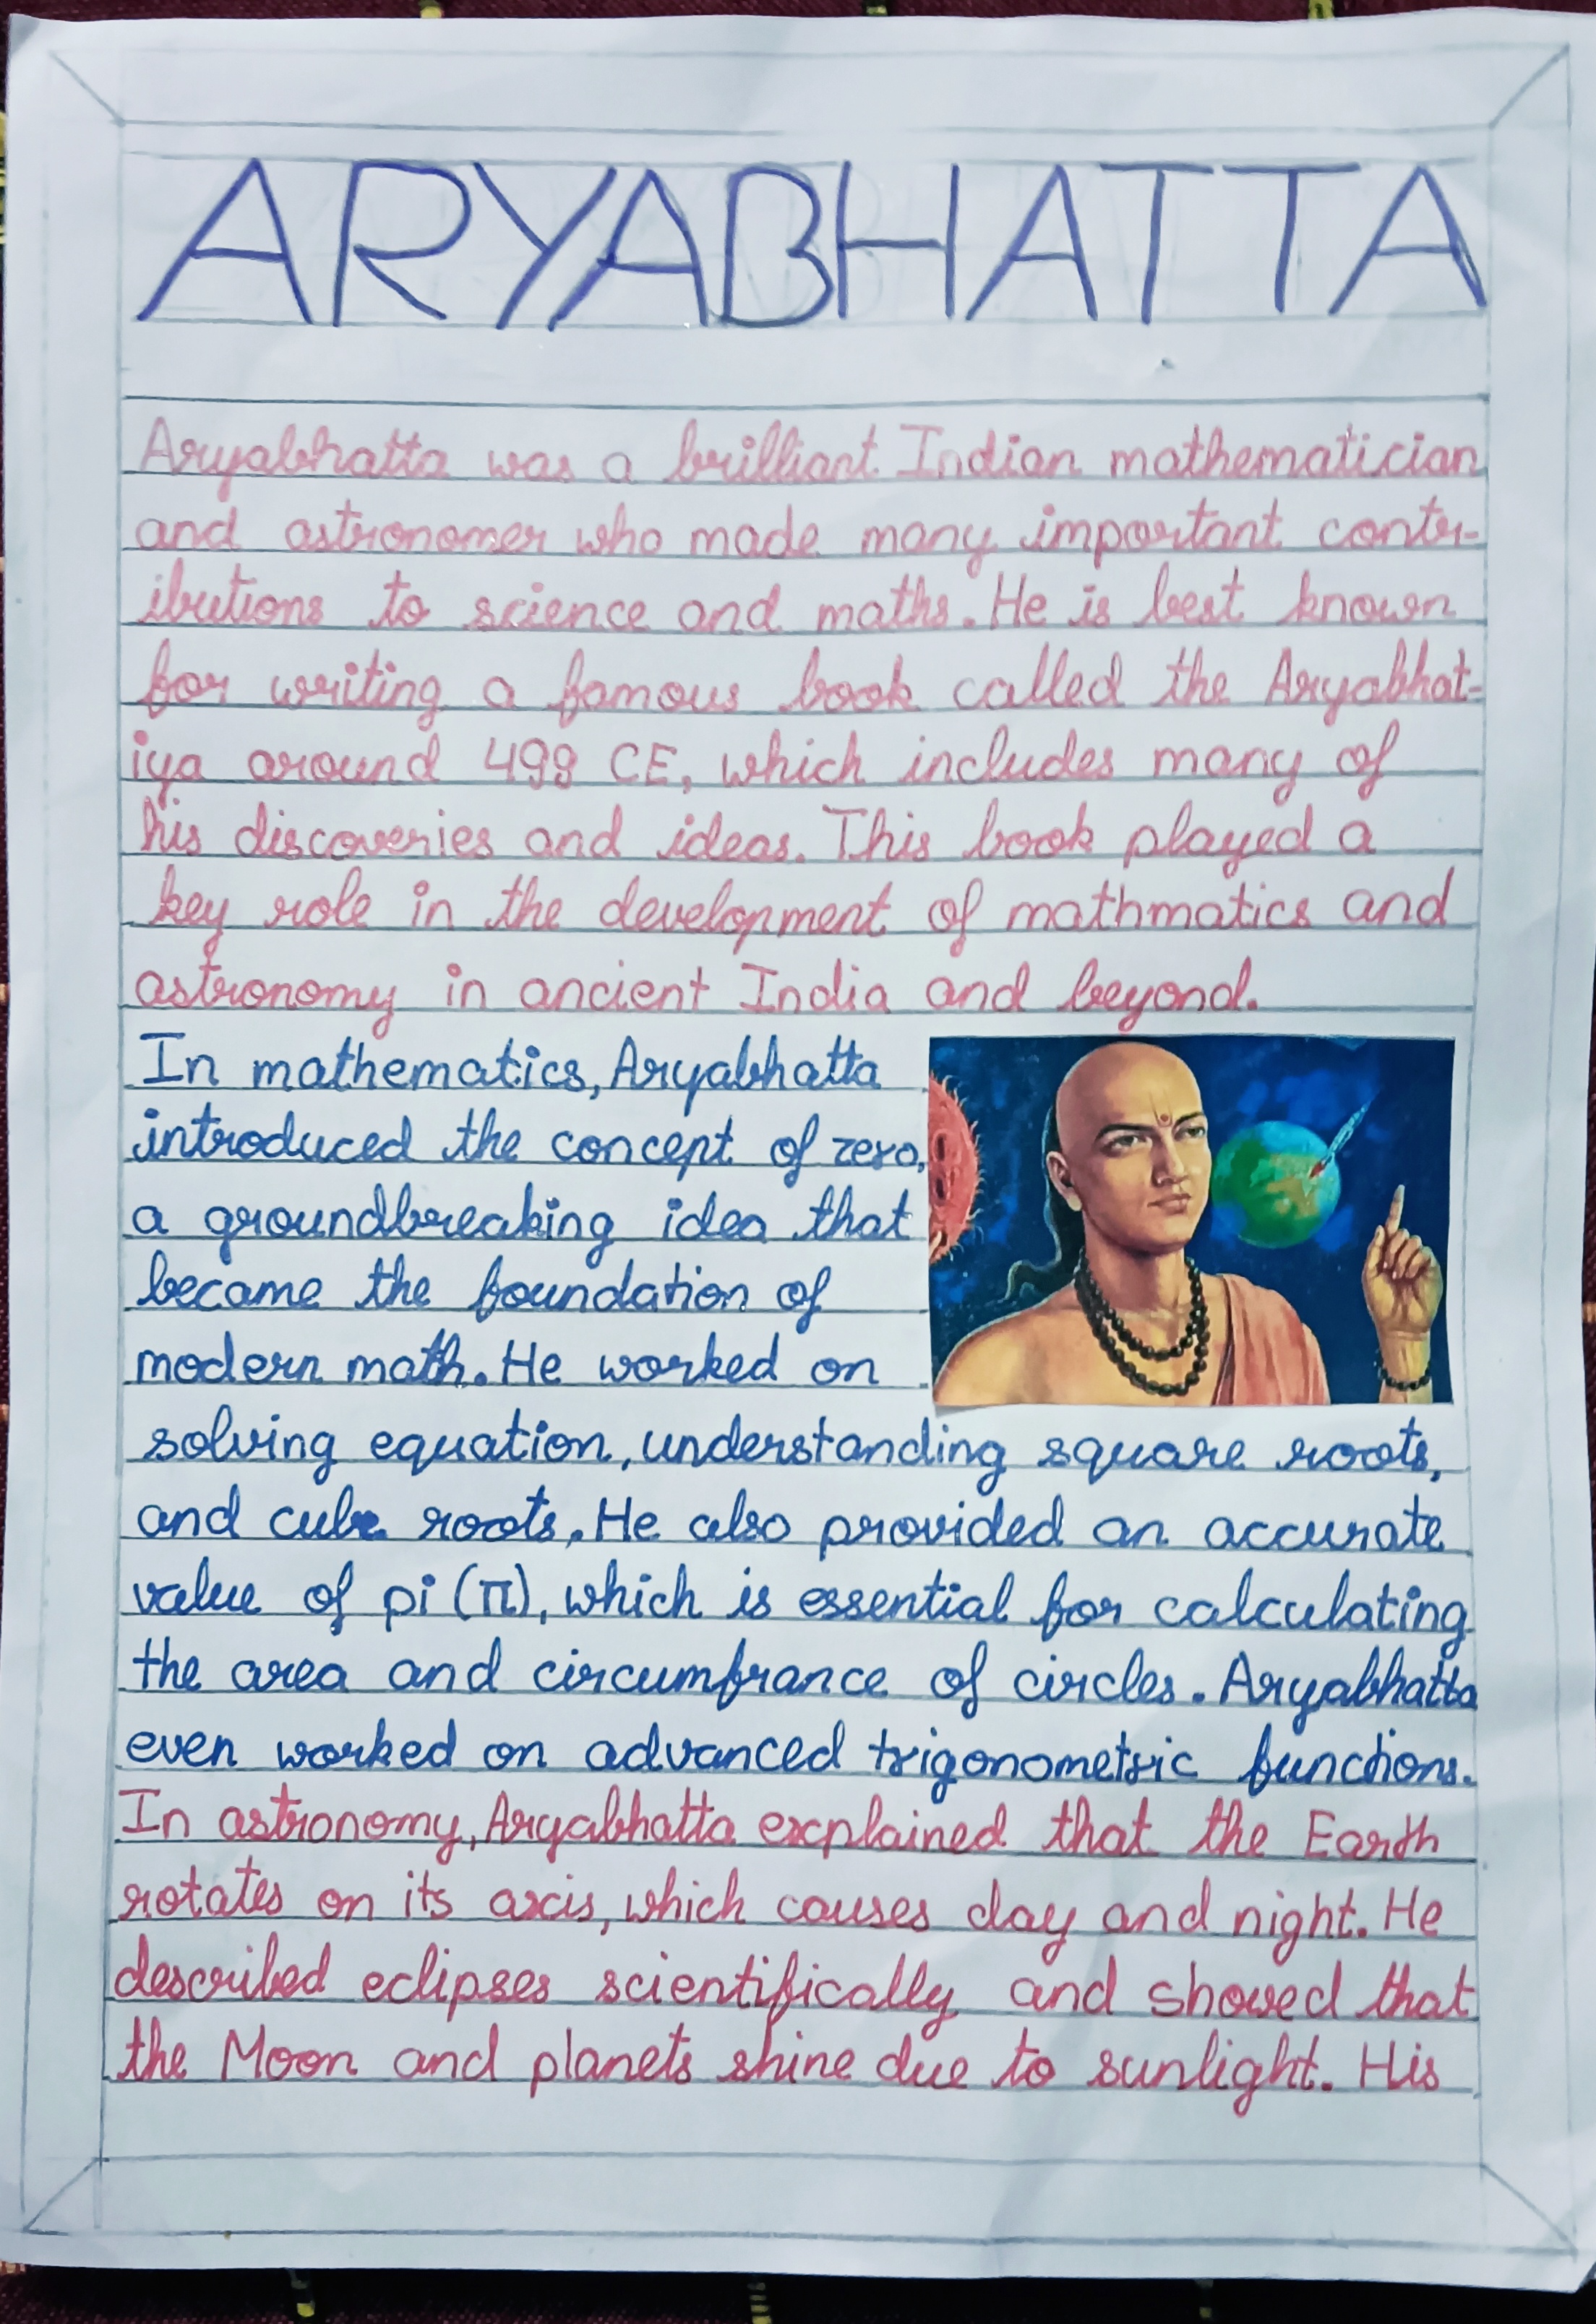 ARYABHATTA
Aryabhatta was a brilliant Indian mathematician
and astronomer who made many important contr-
ibutions to science and maths. He is best known
for writing a famous book called the Aryabhat-
iya around 499 CE, which includes many of
his discoveries and ideas. This book played a
key role in the development of mathmatics and
astronomy in ancient India and beyond.
In mathematics, Aryabhatta
introduced the concept of zero,
a groundbreaking idea that
became the foundation of
modern math. He worked on
solving equation, understanding square roots,
and cube roots. He also provided an accurate
value of pi (π), which is essential for calculating
the area and circumfrance of circles. Aryabhatta
even worked on advanced trigonometric functions.
In astronomy, Aryabhatta explained that the Earth
rotates on its axis, which causes day and night. He
described eclipses scientifically and showed that
the Moon and planets shine due to sunlight. His